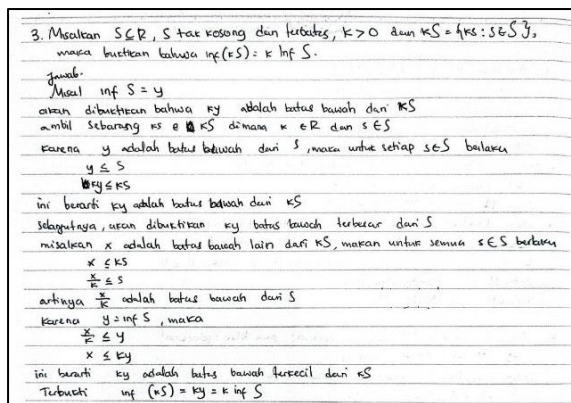 3. Misalkan S⊆R, S tak kosong dan terbatas, k>0 dan kS = {ks : s∈S},
maka buktikan bahwa inf(kS) = k Inf S.
Jawab.
Misal inf S = y
akan dibuktikan bahwa ky adalah batas bawah dari kS
ambil sebarang ks ∈ kS dimana k ∈ R dan s ∈ S
Karena y adalah batas bawah dari S, maka untuk setiap s∈S berlaku
y ≤ S
ky ≤ kS
ini berarti ky adalah batas bawah dari kS
Selanjutnya, akan dibuktikan ky batas bawah terbesar dari S
misalkan x adalah batas bawah lain dari kS, makan untuk semua s∈S berlaku
x ≤ kS
x/k ≤ s
artinya x/k adalah batas bawah dari S
Karena y = inf S, maka
x/k ≤ y
x ≤ ky
ini berarti ky adalah batas bawah terkecil dari kS
Terbukti inf (kS) = ky = k inf S